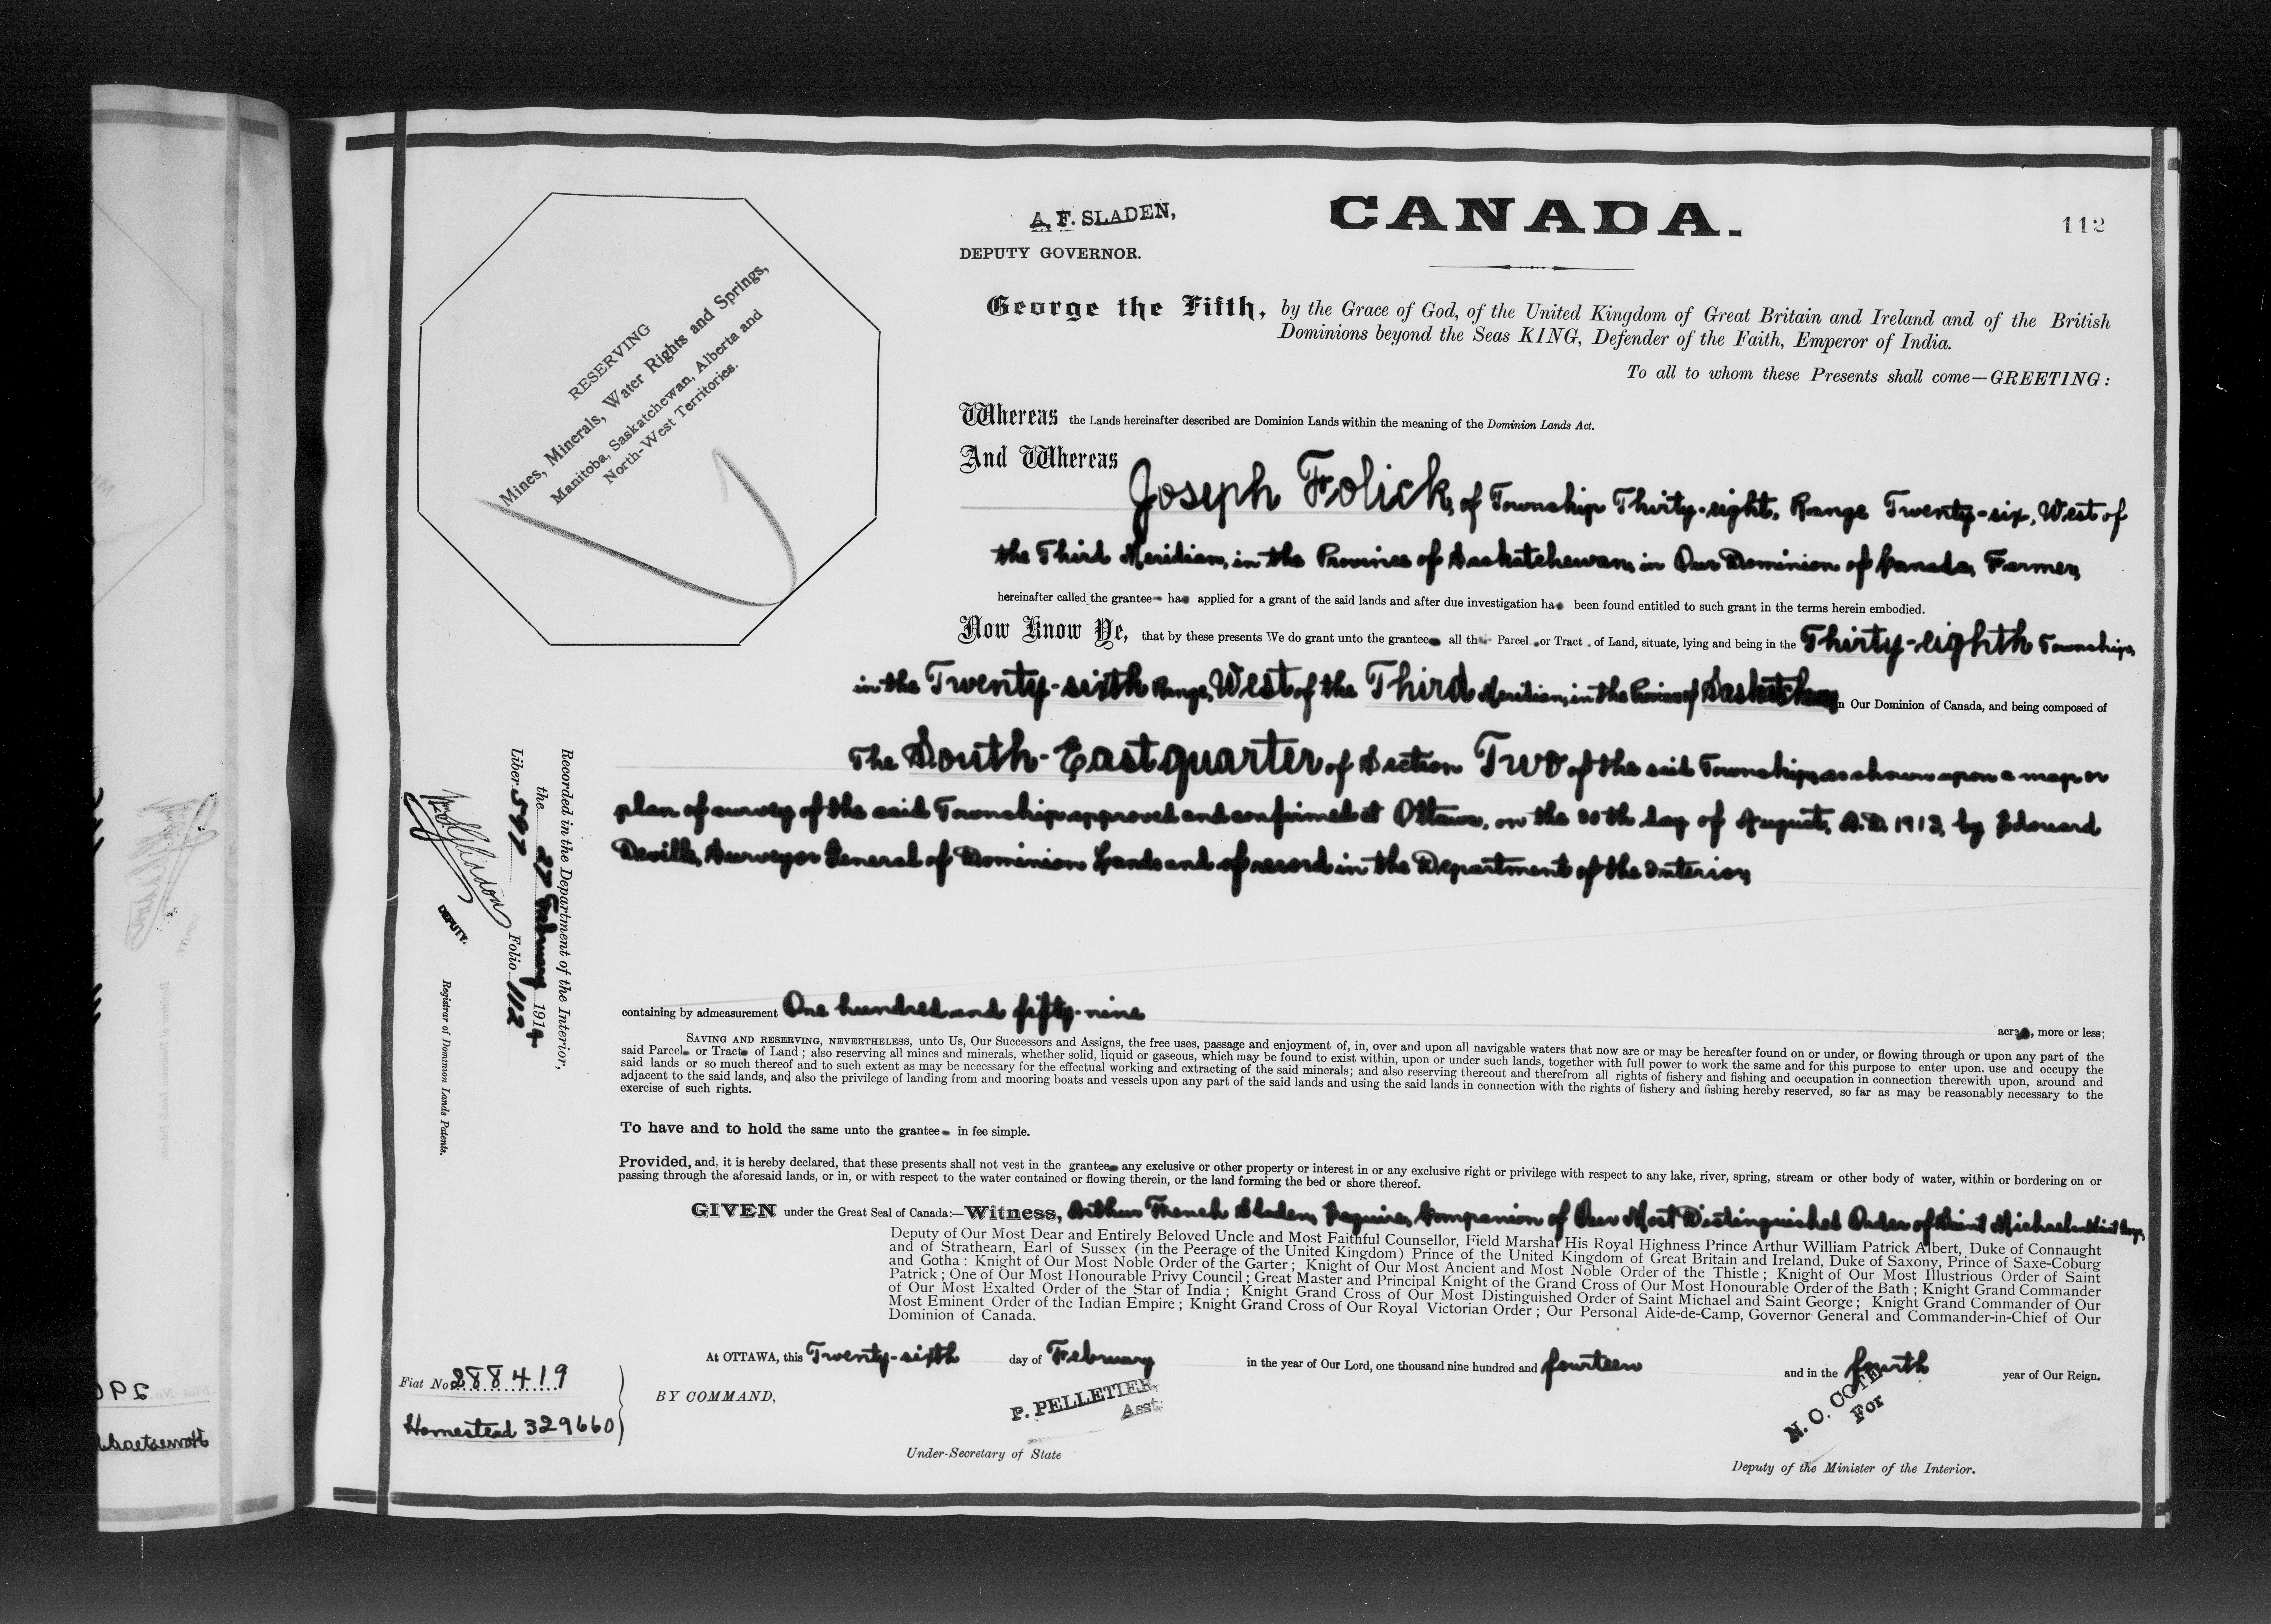 A. F. SLADEN,
DEPUTY GOVERNOR.
CANADA.
112
RESERVING
Mines, Minerals, Water Rights and Springs,
Manitoba, Saskatchewan, Alberta and
North-West Territories.
George the Fifth, by the Grace of God, of the United Kingdom of Great Britain and Ireland and of the British
Dominions beyond the Seas KING, Defender of the Faith, Emperor of India.
To all to whom these Presents shall come—GREETING:
Whereas the Lands hereinafter described are Dominion Lands within the meaning of the Dominion Lands Act.
And Whereas
Joseph Folick, of Township Thirty-eight, Range Twenty-six, West of
the Third Meridian, in the Province of Saskatchewan, in Our Dominion of Canada, Farmer,
hereinafter called the grantee ha applied for a grant of the said lands and after due investigation ha been found entitled to such grant in the terms herein embodied.
Now Know Ye, that by these presents We do grant unto the grantee all th Parcel or Tract of Land, situate, lying and being in the Thirty-eighth Township,
in the Twenty-sixth Range, West of the Third Meridian, in the Province of Saskatchewan in Our Dominion of Canada, and being composed of
The South-East quarter of Section Two of the said Township, as shown upon a map or
plan of survey of the said Township approved and confirmed at Ottawa, on the day of August, A.D. 1913, by Edouard
Deville, Surveyor General of Dominion Lands and of record in the Department of the Interior,
containing by admeasurement One hundred and fifty-nine acre, more or less;
SAVING AND RESERVING, NEVERTHELESS, unto Us, Our Successors and Assigns, the free uses, passage and enjoyment of, in, over and upon all navigable waters that now are or may be hereafter found on or under, or flowing through or upon any part of the
said Parcel or Tract of Land; also reserving all mines and minerals, whether solid, liquid or gaseous, which may be found to exist within, upon or under such lands, together with full power to work the same and for this purpose to enter upon, use and occupy the
said lands or so much thereof and to such extent as may be necessary for the effectual working and extracting of the said minerals; and also reserving thereout and therefrom all rights of fishery and fishing and occupation in connection therewith upon, around and
adjacent to the said lands, and also the privilege of landing from and mooring boats and vessels upon any part of the said lands and using the said lands in connection with the rights of fishery and fishing hereby reserved, so far as may be reasonably necessary to the
exercise of such rights.
To have and to hold the same unto the grantee in fee simple.
Provided, and, it is hereby declared, that these presents shall not vest in the grantee any exclusive or other property or interest in or any exclusive right or privilege with respect to any lake, river, spring, stream or other body of water, within or bordering on or
passing through the aforesaid lands, or in, or with respect to the water contained or flowing therein, or the land forming the bed or shore thereof.
GIVEN under the Great Seal of Canada:—Witness, Arthur French Sladen, Esquire, Companion of Our Most Distinguished Order of Saint Michael and Saint George,
Deputy of Our Most Dear and Entirely Beloved Uncle and Most Faithful Counsellor, Field Marshal His Royal Highness Prince Arthur William Patrick Albert, Duke of Connaught
and of Strathearn, Earl of Sussex (in the Peerage of the United Kingdom) Prince of the United Kingdom of Great Britain and Ireland, Duke of Saxony, Prince of Saxe-Coburg
and Gotha: Knight of Our Most Noble Order of the Garter; Knight of Our Most Ancient and Most Noble Order of the Thistle; Knight of Our Most Illustrious Order of Saint
Patrick; One of Our Most Honourable Privy Council; Great Master and Principal Knight of the Grand Cross of Our Most Honourable Order of the Bath; Knight Grand Commander
of Our Most Exalted Order of the Star of India; Knight Grand Cross of Our Most Distinguished Order of Saint Michael and Saint George; Knight Grand Commander of Our
Most Eminent Order of the Indian Empire; Knight Grand Cross of Our Royal Victorian Order; Our Personal Aide-de-Camp, Governor General and Commander-in-Chief of Our
Dominion of Canada.
At OTTAWA, this Twenty-sixth day of February in the year of Our Lord, one thousand nine hundred and fourteen and in the fourth year of Our Reign.
BY COMMAND,
P. PELLETIER,
Asst.
Under-Secretary of State
N. O. COTE
For
Deputy of the Minister of the Interior.
Fiat No 288419
Homestead 329660
Recorded in the Department of the Interior,
the 27 February 1914
Liber 597 Folio 112
DEPUTY.
Registrar of Dominion Lands Patents.